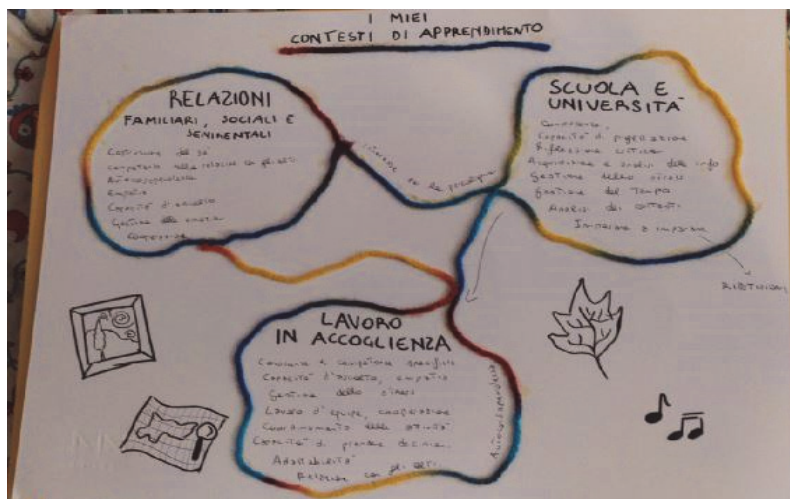 I MIEI
CONTESTI DI APPRENDIMENTO
RELAZIONI
FAMILIARI, SOCIALI E
SENIMENTALI
Costruzione del sé
competenza nella relazione con gli altri
Autoconsapevolezza
Empatia
Capacità d'ascolto
Gestione delle
conoscenza
SCUOLA E
UNIVERSITÀ
Conoscenze
Capacità di
Riflessione critica
Acquisizione e analisi delle info
Gestione dello stress
Gestione del tempo
Analisi dei contesti
Imparare a imparare
RIFLESSIONI
LAVORO
IN ACCOGLIENZA
Conoscenze e competenze specifiche
Capacità d'ascolto, empatia
Gestione dello stress
Lavoro d'equipe, cooperazione
Coordinamento delle attività
Capacità di prendere decisioni
Adattabilità
Relazione con gli altri
Autoconsapevolezza